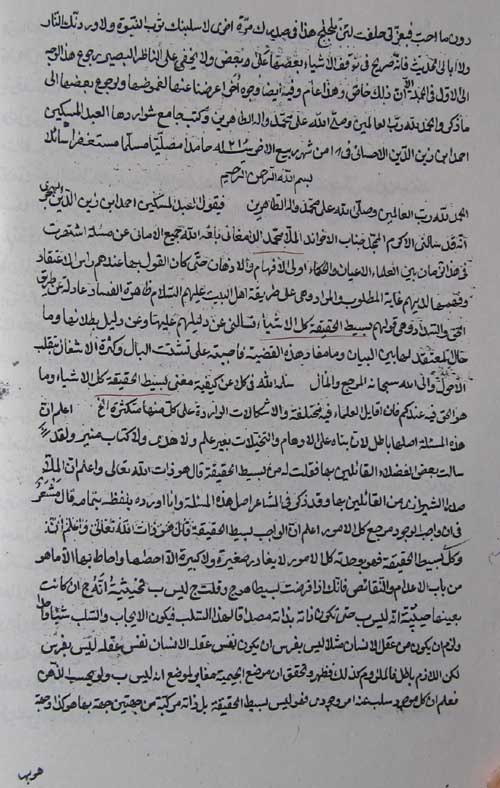 دون ما احب فبعزتي حلفت لئن تلجلج هذا في صدرك مرة اخرى لاسلبنك ثوب النبوة ولاوردنك النار
ولا ابالي الحديث فانه صريح في توقف الاشياء بعضها على بعض ولا يخفى على الناظر البصير رجوع هذا الوجه
الى الاول في الجملة الا ان ذلك خاص وهذا عام وفيه ايضا وجوه اخر اعرضنا عنها لغموضها ويرجع بعضها الى
ما ذكر والحمد لله رب العالمين وصلى الله على محمد واله الطاهرين وكتب جامع شواردها العبد المسكين
احمد ابن زين الدين الاحسائي في من شهر ربيع الاخر سنه حامدا مصليا مسلما مستغفرا سائلا
بسم الله الرحمن الرحيم
الحمد لله رب العالمين وصلى الله على محمد واله الطاهرين فيقول العبد المسكين احمد ابن زين الدين الهجري
انه قد سالني الاكرم جناب الاخوند الملا محمد الدامغاني بلغه الله جميع الاماني عن مسئلة اشتهرت
في هذا الزمان بين العلماء الاعيان والحكماء اولي الافهام والاذهان حتى كان القول بها عندهم راس الاعتقاد
وفهمها لديهم غاية المطلوب والمراد وهي على طريقة اهل البيت عليهم السلام ظاهرة الفساد عادلة عن طريق
الحق والسداد وهي قولهم بسيط الحقيقة كل الاشياء فسالني عن دليلهم عليها وعن دليل بطلانها وما
حال معتقدها بين البيان وما مفاد هذه القضية فاجبته على تشتت البال وكثرة الاشغال بتقلب
الاحوال والى الله سبحانه المرجع والمال سلمه الله وكلا عن كيفية معنى بسيط الحقيقة كل الاشياء وما
هو الحق فيه عندكم فان اقاويل العلماء فيه مختلفة والاشكالات الواردة على كل منها متكثرة الخ اعلم ان
هذه المسئلة اصلها باطل لان بناءه على الاوهام والتخيلات بغير علم ولا هدى ولا كتاب منير ولقد
سالت بعض الفضلاء القائلين بها فقلت له من بسيط الحقيقة قال هو ذات الله تعالى واعلم ان الملا
صدرا الشيرازي من القائلين بها وقد ذكر في المشاعر اصل هذه المسئلة وانا اورده بلفظه بتمامه قال مشعر
في ان واجب الوجود مرجع كل الامور اعلم ان الواجب بسيط الحقيقة قلت هو ذات الله تعالى واعلم انه
وكل بسيط الحقيقة فهو بوحدته كل الامور لا يغادر صغيرة ولا كبيرة الا احصاها واحاط بها الا ما هو
من باب الاعدام والنقائص فانك اذا فرضت بسيطا هو ج وقلت ج ليس ب فحيثية انه ج ان كانت
بعينها حيثية انه ليس ب حتى تكون ذاته بذاته مصداقا لهذا السلب فيكون الايجاب والسلب شيئا واحدا
ولزم ان يكون من عقل الانسان مثلا ليس بفرس ان يكون نفس عقله الانسان نفس عقله ليس بفرس
لكن اللازم باطل فالملزوم كذلك فظهر وتحقق ان موضع الجيمية مغاير لموضع انه ليس ب ولو بحسب الذهن
فعلم ان كل موجود سلب عنه امر وجودي فهو ليس بسيط الحقيقة بل ذاته مركبة من جهتين جهة بها هو كذا وجهة
هو بها